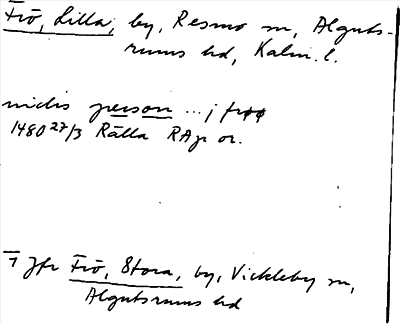 Frö, Lilla, by, Resmo sn, Alguts-
rums hd, Kalm. l.
nichis person ... j frøø
1480 27/3 Rälla RAp or.
Jfr Frö, Stora, by, Vickleby sn,
Algutsrums hd